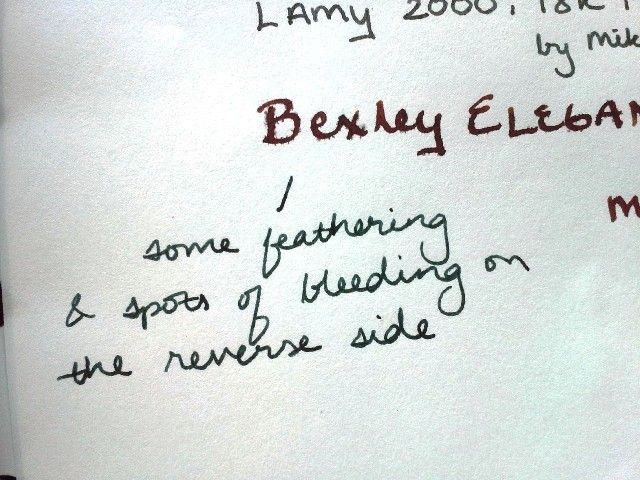 LAMY 2000, 18K
by Mik
Bexley ELEGAN
M
some feathering
& spots of bleeding on
the reverse side